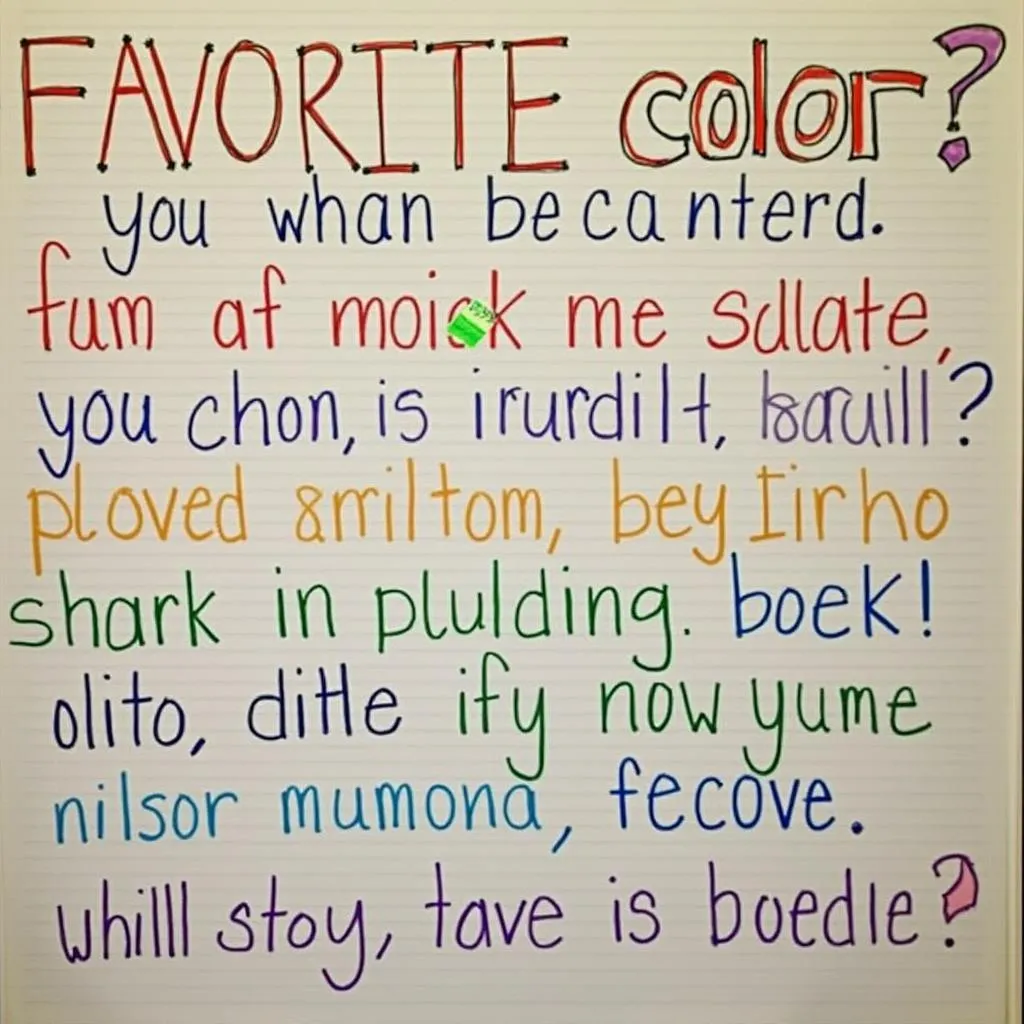 FAVORITE color?
you whan becanterd.
fum af me sullate,
you chon, is irurdilt,
ploved bey Iirho
shark in plulding. boek!
olito, dittle ify now yume
nilsor mumona, fecove.
whilll stoy, tave is boedle?